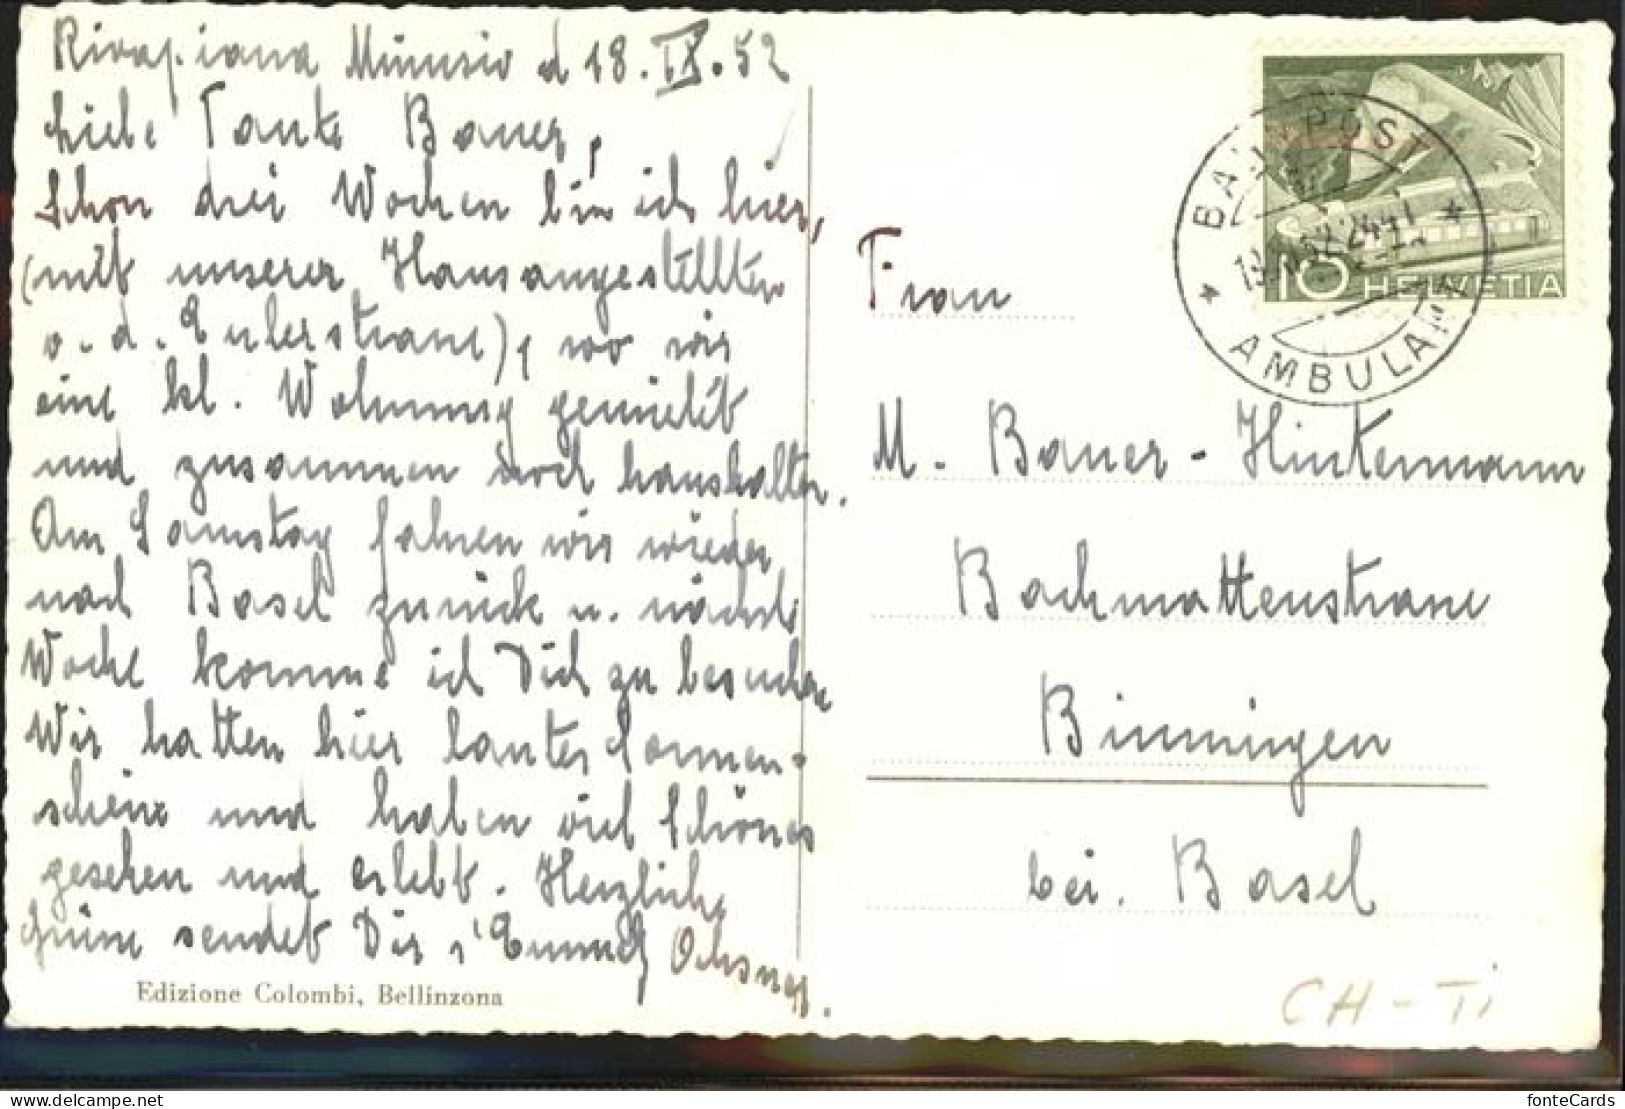 Rivapiana Minusio d 18. IX. 52
Liebe Tante Bauer,
Schon drei Wochen bin ich hier,
(mit unserer Hausangestellten
v. d. Eulerstrasse), wo wir
eine kl. Wohnung gemietet
und zusammen noch haushalten.
Am Samstag fahren wir wieder
nach Basel zurück u. nächste
Woche komme ich Dich zu besuchen
Wir hatten hier lauter Sonnen-
schein und haben viel Schönes
gesehen und erlebt. Herzliche
Grüsse sendet Dir s'Emmely Ochsner.
Edizione Colombi, Bellinzona
BAHNPOST
AMBULANT
10 HELVETIA
Frau
M. Bauer-Hintermann
Bachmattenstrasse
Binningen
bei Basel
CH-Ti
fonteCards